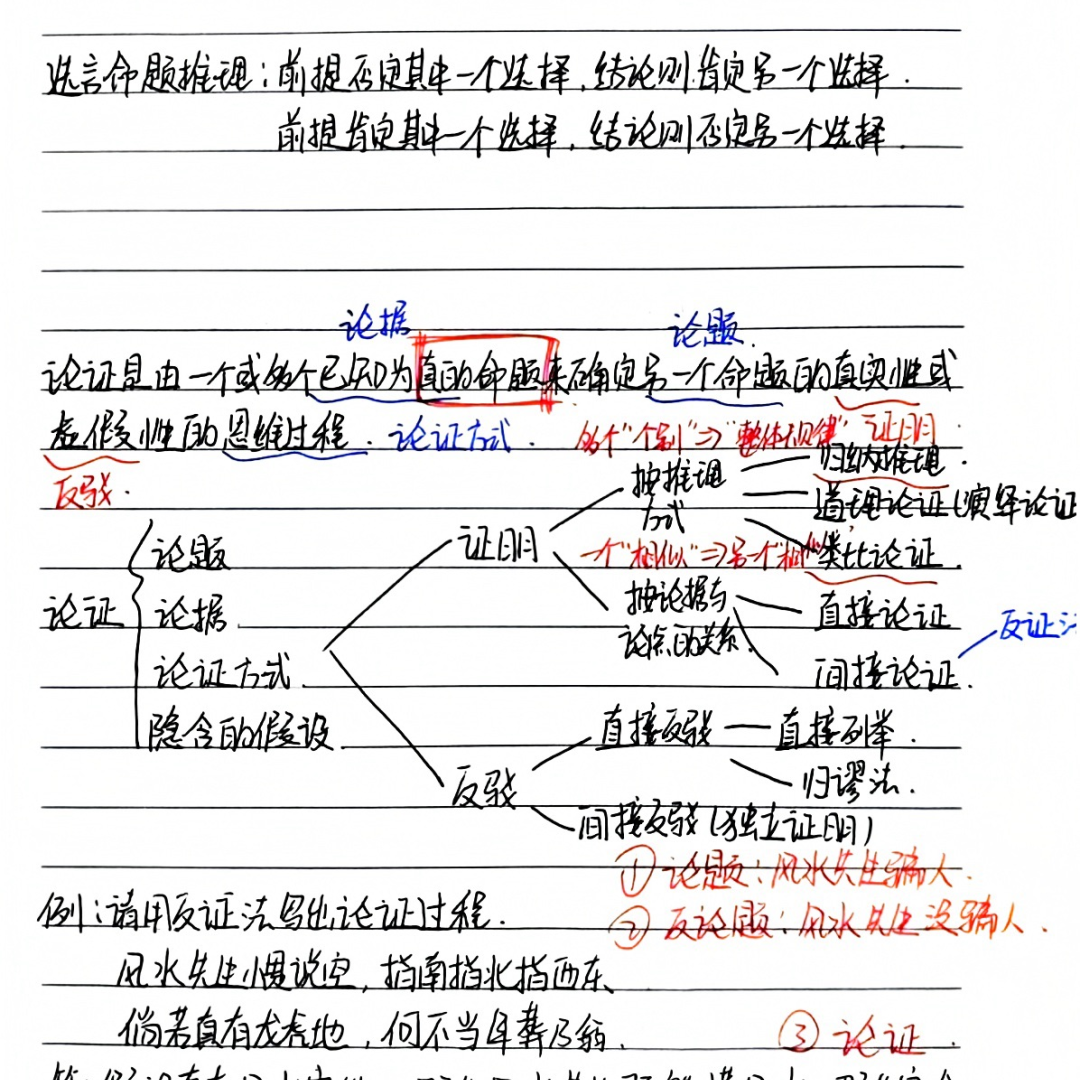 选言命题推理：前提否定其中一个选择，结论则肯定另一个选择．
前提肯定其中一个选择，结论则否定另一个选择．
论据
论题．
论证是由一个或多个已知为真的命题来确定另一个命题的真实性或
虚假性的思维过程．论证方式．
多个“个别”⇒“整体规律”
证明
反驳．
论证
论题
论据
论证方式
隐含的假设
证明
按推理
方式
归纳推理．
道理论证（演绎论证
一个“相似”⇒另一个
类比论证．
按论据与
论点的关系
直接论证
间接论证．
反证法
反驳
直接反驳
直接列举．
归谬法．
间接反驳（独立证明）
①论题：风水先生骗人．
②反论题：风水先生没骗人．
例：请用反证法写出论证过程．
风水先生惯说空，指南指北指西东、
倘若真有龙虎地，何不当年葬乃翁．
③论证．